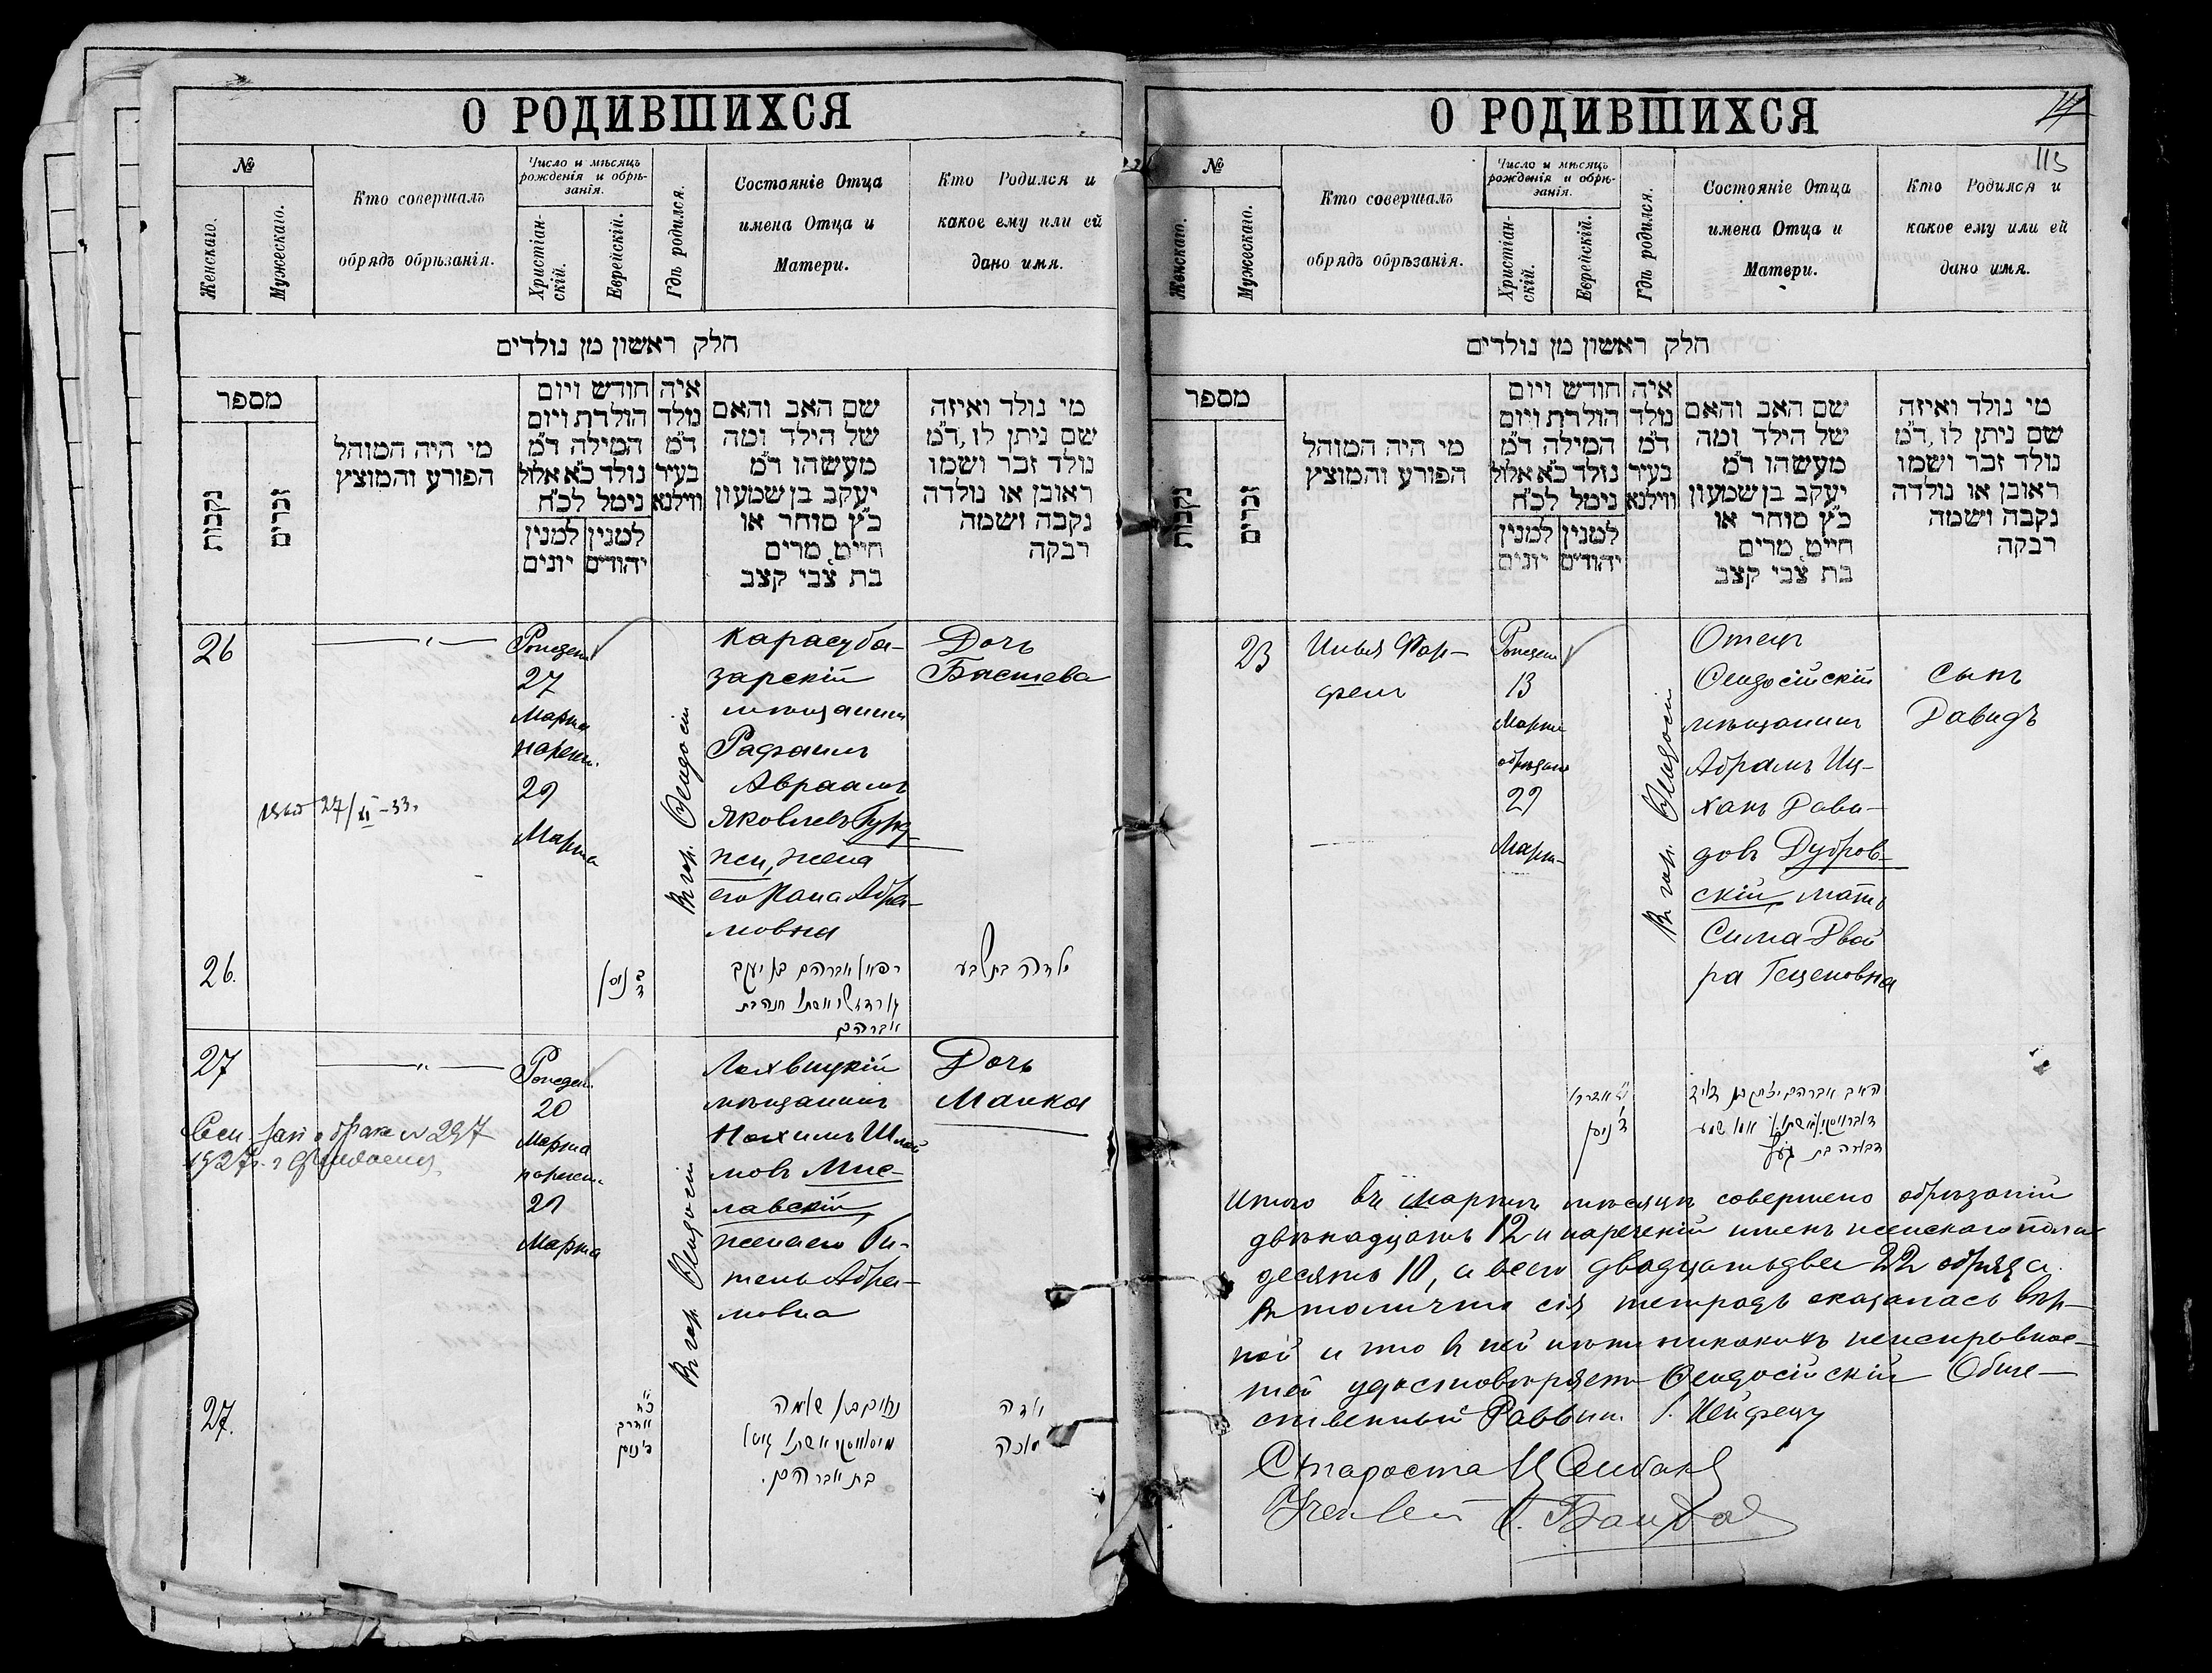 О РОДИВШИХСЯ
№
Женскаго.
Мужескаго.
Кто совершалъ
обрядъ обрѣзанія.
Число и мѣсяцъ
рожденія и обрѣ-
занія.
Христіан-
скій.
Еврейскій.
Гдѣ родился.
Состояніе Отца
имена Отца и
Матери.
Кто Родился и
какое ему или ей
дано имя.
חלק ראשון מן נולדים
מספר
נקבות
זכרים
מי היה המוהל
הפורע והמוצץ
חודש ויום
הולדת ויום
המילה ד"מ
נולד כ"א אלול
נימל לכ"ח
למנין
יונים
למנין
יהודים
איה
נולד
ד"מ
בעיר
ווילנא
שם האב והאם
של הילד ומה
מעשהו ד"מ
יעקב בן שמעון
כ"ץ סוחר או
חייט, מרים
בת צבי קצב
מי נולד ואיזה
שם ניתן לו, ד"מ
נולד זכר ושמו
ראובן או נולדה
נקבה ושמה
רבקה
26
27
Марта
нареч.
29
Марта
Въ гор. Ѳеодосіи
Карасуба-
зарскій
мѣщанинъ
Рафаилъ
Авраамъ
Яковлевъ Гурд-
жи, жена
его Хана Абра-
мовна
Дочь
Бысшева
27/XI-33.
26.
ד ניסן
רפאל אברהם בן יעקב
גורדזשי אשתו חנה בת
אברהם
ילדה בת שבע
27
20
Марта
нареч.
21
Марта
Въ гор. Ѳеодосіи
Лохвицкій
мѣщанинъ
Нохимъ Шлей
мовъ Мис-
лавскій,
жена его Ги-
тель Абра-
мовна
Дочь
Малка
о бракѣ № 297
1927г.
27.
אשתו גיטל
בת אברהם.
ילדה
מלכה
О РОДИВШИХСЯ
14
113
№
Женскаго.
Мужескаго.
Кто совершалъ
обрядъ обрѣзанія.
Число и мѣсяцъ
рожденія и обрѣ-
занія.
Христіан-
скій.
Еврейскій.
Гдѣ родился.
Состояніе Отца
имена Отца и
Матери.
Кто Родился и
какое ему или ей
дано имя.
חלק ראשון מן נולדים
מספר
נקבות
זכרים
מי היה המוהל
הפורע והמוצץ
חודש ויום
הולדת ויום
המילה ד"מ
נולד כ"א אלול
נימל לכ"ח
למנין
יונים
למנין
יהודים
איה
נולד
ד"מ
בעיר
ווילנא
שם האב והאם
של הילד ומה
מעשהו ד"מ
יעקב בן שמעון
כ"ץ סוחר או
חייט, מרים
בת צבי קצב
מי נולד ואיזה
שם ניתן לו, ד"מ
נולד זכר ושמו
ראובן או נולדה
נקבה ושמה
רבקה
23
13
Марта
обрѣзан
29
Март
Въ гор. Ѳеодосіи
Отецъ
Ѳеодосійскій
мѣщанинъ
Абрамъ Иц-
хакъ Дави-
довъ Дубров-
скій, мать
Сима-Двой
ра Гецеловна
Сынъ
Давидъ
האב אברהם יצחק בן דוד
דבורה בת
Итого въ Мартѣ мѣсяцѣ совершено обрѣзаній
двѣнадцать 12 и нареченій именъ женскаго пола
десять 10, а всего двадцать два 22 обряда.
сія тетрадь оказалась вѣр-
ной и что въ ней нѣтъ никакихъ неисправнос-
тей удостовѣряетъ Ѳеодосійскій Обще-
ственный Раввинъ
Староста